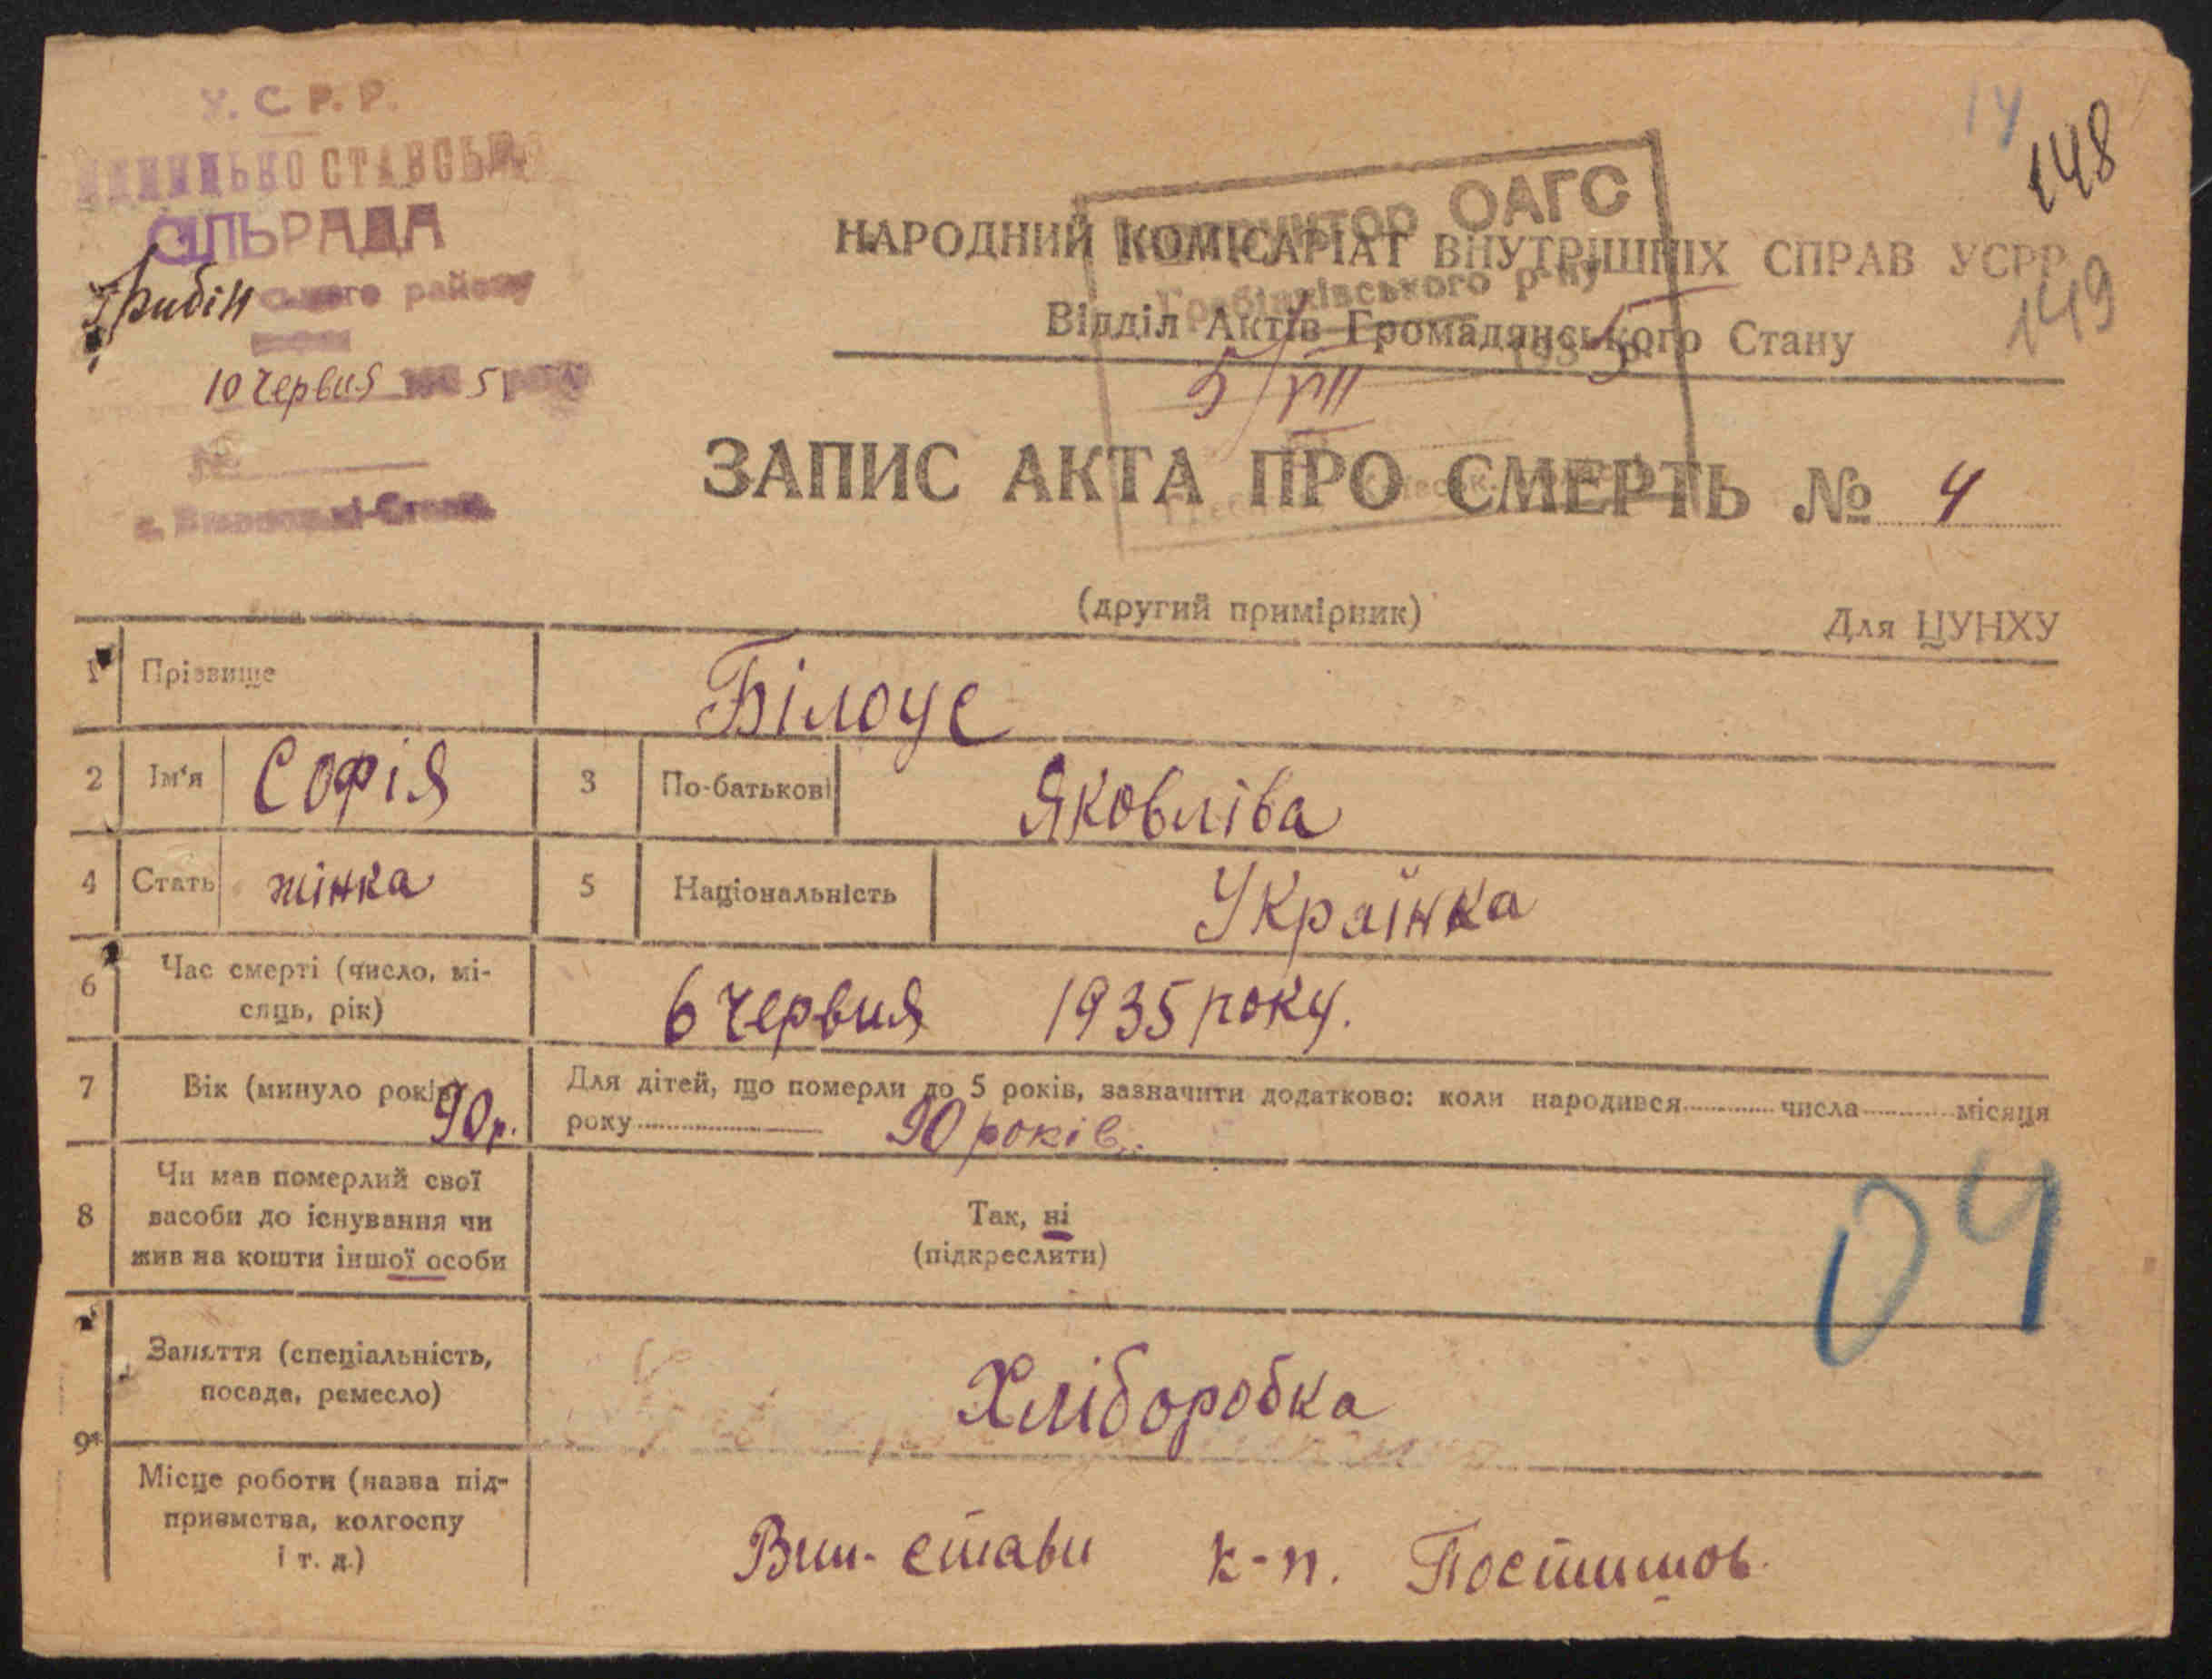 У.С.Р.Р.
СІЛЬРАДА
Грибін ського району
10 червня 193 5 року
№
14
148
149
ОАГС
р-ну
5/VII
НАРОДНИЙ КОМІСАРІАТ ВНУТРІШНІХ СПРАВ УСРР
Відділ Актів Громадянського Стану
ЗАПИС АКТА ПРО СМЕРТЬ № 4
(другий примірник)
Для ЦУНХУ
1 Прізвище Білоус
2 Ім'я Софія 3 По-батькові Яковліва
4 Стать жінка 5 Національність Українка
6 Час смерті (число, мі-
сяць, рік) 6 червня 1935 року.
7 Вік (минуло років) 90 р. Для дітей, що померли до 5 років, зазначити додатково: коли народився числа місяця
року 90 років.
8 Чи мав померлий свої
засоби до існування чи
жив на кошти іншої особи
Так, ні
(підкреслити)
04
9* Заняття (спеціальність,
посада, ремесло) Хліборобка
Місце роботи (назва під-
приємства, колгоспу
і т. д.) Виш-стави к-п. Постишов